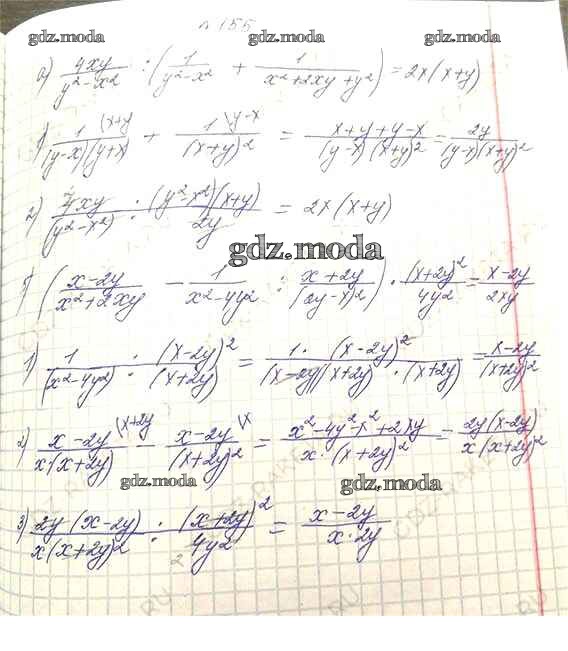 № 155
gdz.moda gdz.moda gdz.moda
а) 4xy/(y²-x²) : (1/(y²-x²) + 1/(x²+2xy+y²)) = 2x(x+y)
1) 1\(x+y/(y-x)(y+x) + 1\y-x/(x+y)² = (x+y+y-x)/((y-x)(x+y)²) = 2y/((y-x)(x+y)²)
2) 4xy/(y²-x²) · (y²-x²)(x+y)/2y = 2x(x+y)
gdz.moda
б) ((x-2y)/(x²+2xy) - 1/(x²-4y²) : (x+2y)/(2y-x)²) · (x+2y)²/4y² = (x-2y)/2xy
1) 1/(x²-4y²) : (x-2y)²/(x+2y) = 1·(x-2y)²/((x-2y)(x+2y)·(x+2y)) = (x-2y)/(x+2y)²
gdz.moda
2) x-2y\(x+2y/x(x+2y) - x-2y\x/(x+2y)² = (x²-4y²-x²+2xy)/(x·(x+2y)²) = 2y(x-2y)/(x(x+2y)²)
gdz.moda gdz.moda
3) 2y(x-2y)/(x(x+2y)²) : (x+2y)²/4y² = (x-2y)/(x·2y)